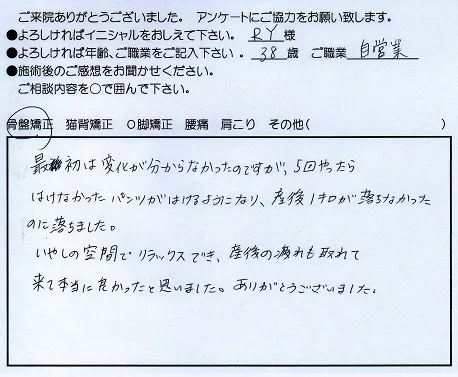 ご来院ありがとうございました。 アンケートにご協力をお願い致します。
●よろしければイニシャルをおしえて下さい。 RY 様
●よろしければ年齢、ご職業をご記入下さい。 38 歳 ご職業 自営業
●施術後のご感想をお聞かせください。
ご相談内容を○で囲んで下さい。
骨盤矯正 猫背矯正 O脚矯正 腰痛 肩こり その他( )
最初は変化が分からなかったのですが、5回やったら
はけなかったパンツがはけるようになり、産後1キロが落ちなかった
のに落ちました。
いやしの空間でリラックスでき、産後の疲れも取れて
来て本当に良かったと思いました。ありがとうございました。